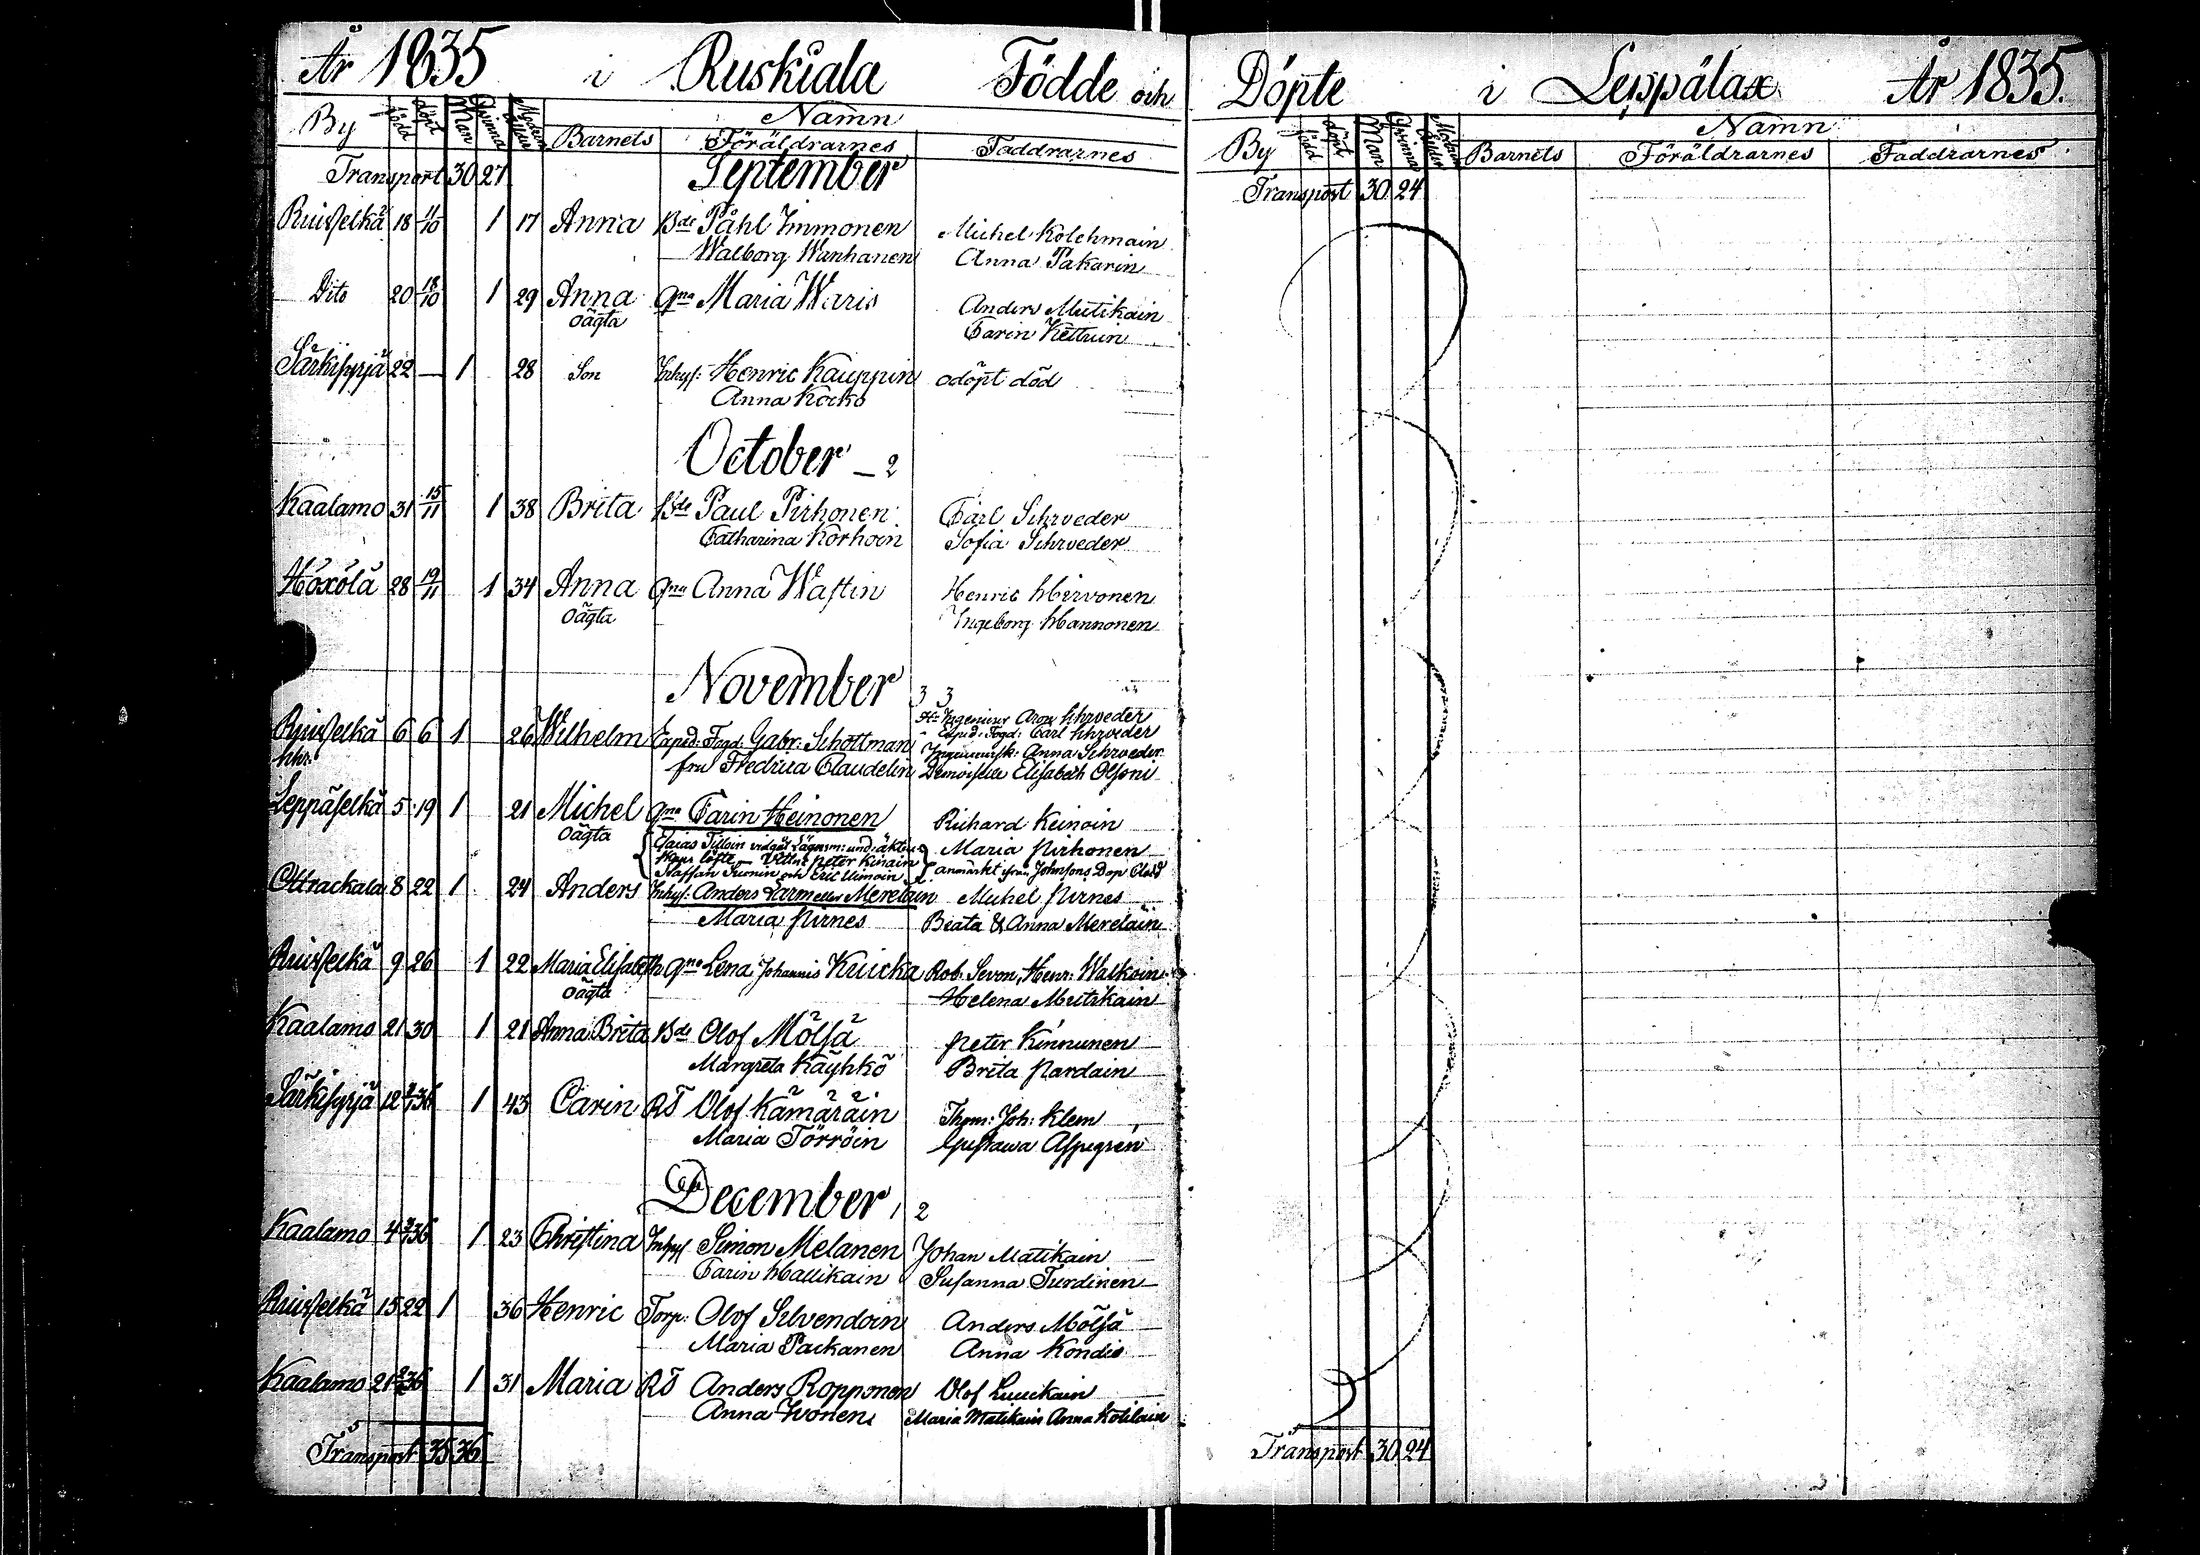 År 1835 i Ruskiala Födde och
By född döpt Man Qvinna Modrens ålder Namn
Barnets Föräldrarnes Faddrarnes
Transport 30 27 September
Ruisselkä 18 11/10 1 17 Anna Bde Påhl Immonen Michel Kolehmain
Walborg Wanhanen Anna Pakarin
Dito 20 18/10 1 29 Anna Qna Maria Waris Anders Mutikain
oägta Carin Kettuin
Särkisyrjä 22 — 1 28 Son Inhys: Henric Kauppin odöpt död
Anna Kocko
October – 2
Kaalamo 31 15/11 1 38 Brita Bde Paul Pirhonen Carl Schrœder
Catharina Korhoin Sofia Schrœder
Höxölä 28 19/11 1 34 Anna Qna Anna Wastin Henric Hirvonen
oägta Ingeborg Hannonen
November 3 3
Hr Ingenieur Aron Schrœder
Ruisselkä 6 6 1 26 Wilhelm Exped: Fogd. Gabr: Schottman Exped: Fogd: Carl Schrœder
hhr: Anna Schrœder
fru Fredrica Claudelin Demoiselle Elisabeth Olsoni
Leppäselkä 5 19 1 21 Michel Qna Carin Heinonen Richard Keinoin
oägta Maria Pirhonen
Esaias Tilloin vidgåt Lägersm: und: äkten-
skaps löfte – Vittne Peter Kinain
Staffan Suonin och Eric Uimoin anmärkt ifrån Johnsons Dop
Ottrackala 8 22 1 24 Anders Inhys: Anders Larm eller Merelain Michel Pirnes
Maria Pirnes Beata & Anna Mereläin
Ruisselkä 9 26 1 22 Maria Elisabeth Qna Lena Johannis Kuicka Rob. Sevon, Henr: Walkoin
oägta Helena Mutikain
Kaalamo 21 30 1 21 Anna Brita Bde Olof Mölsä Peter Kinnunen
Margreta Käyhkö Brita Pardain
Särkisyrjä 12 36 1 43 Carin RT Olof Kämäräin Thom: Joh: Klem
Maria Törröin Gustawa Aspegren
December 1 2
Kaalamo 4 36 1 23 Christina Inhys Simon Melanen Johan Matikain
Carin Hallikain Susanna Turdinen
Ruisselkä 15 22 1 36 Henric Torp: Olof Silvendoin Anders Mölsä
Maria Packanen Anna Kondie
Kaalamo 21 36 1 31 Maria RT Anders Ropponen Olof Luuckain
Anna Ivonen Maria Matikain Anna Kotilain
Transport 35 36
Döpte i Leppälax År 1835.
By född döpt Man Qvinna Modrens ålder Namn
Barnets Föräldrarnes Faddrarnes
Transport 30 24
Transport 30 24